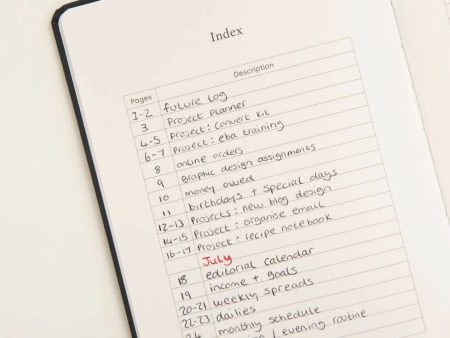 Index
Pages Description
1-2 future log
3 Project Planner
4-5 Project: convert kit
6-7 Project: eba training
8 online orders
9 graphic design assignments
10 money owed
11 birthdays + special days
12-13 Projects: new blog design
14-15 Project: organise email
16-17 Project: recipe notebook
July
18 editorial calendar
19 income + goals
20-21 weekly spreads
22-23 dailies
24 monthly schedule
/ evening routine